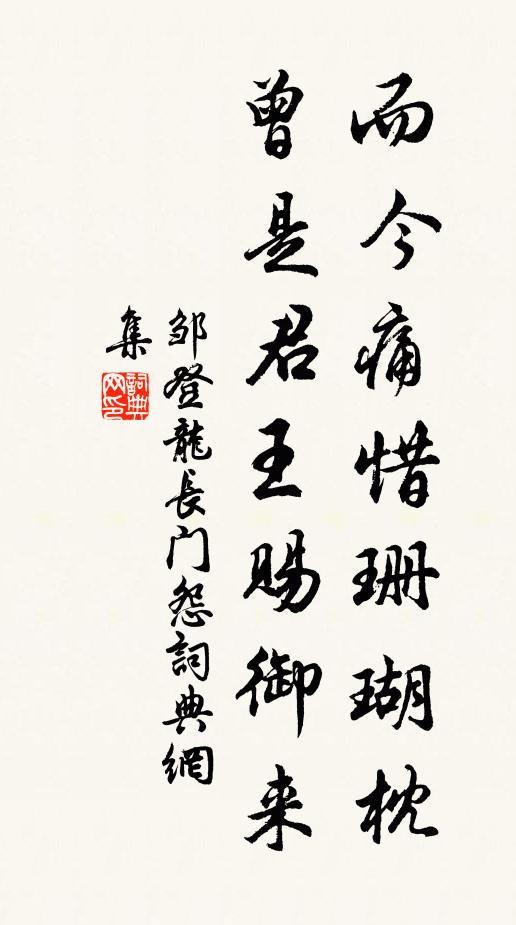 而今痛惜珊瑚枕
曾是君王賜御来
邹登龍長门怨詞典網
集
詞典网印